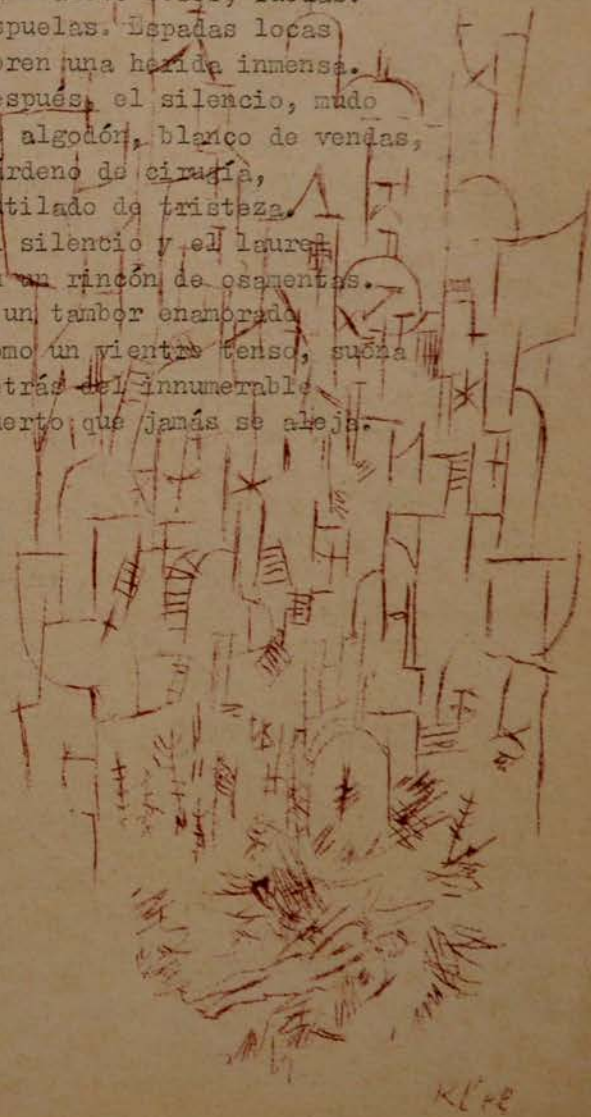 spuelas. Espadas locas
bren una herida inmensa.
espués, el silencio, mudo
algodón, blanco de vendas,
rdeno de cirugía,
tilado de tristeza.
silencio y el laurel
un rincón de osamentas.
un tambor enamorado
omo un vientre tenso, suena
etrás del innumerable
uerto que jamás se aleja.